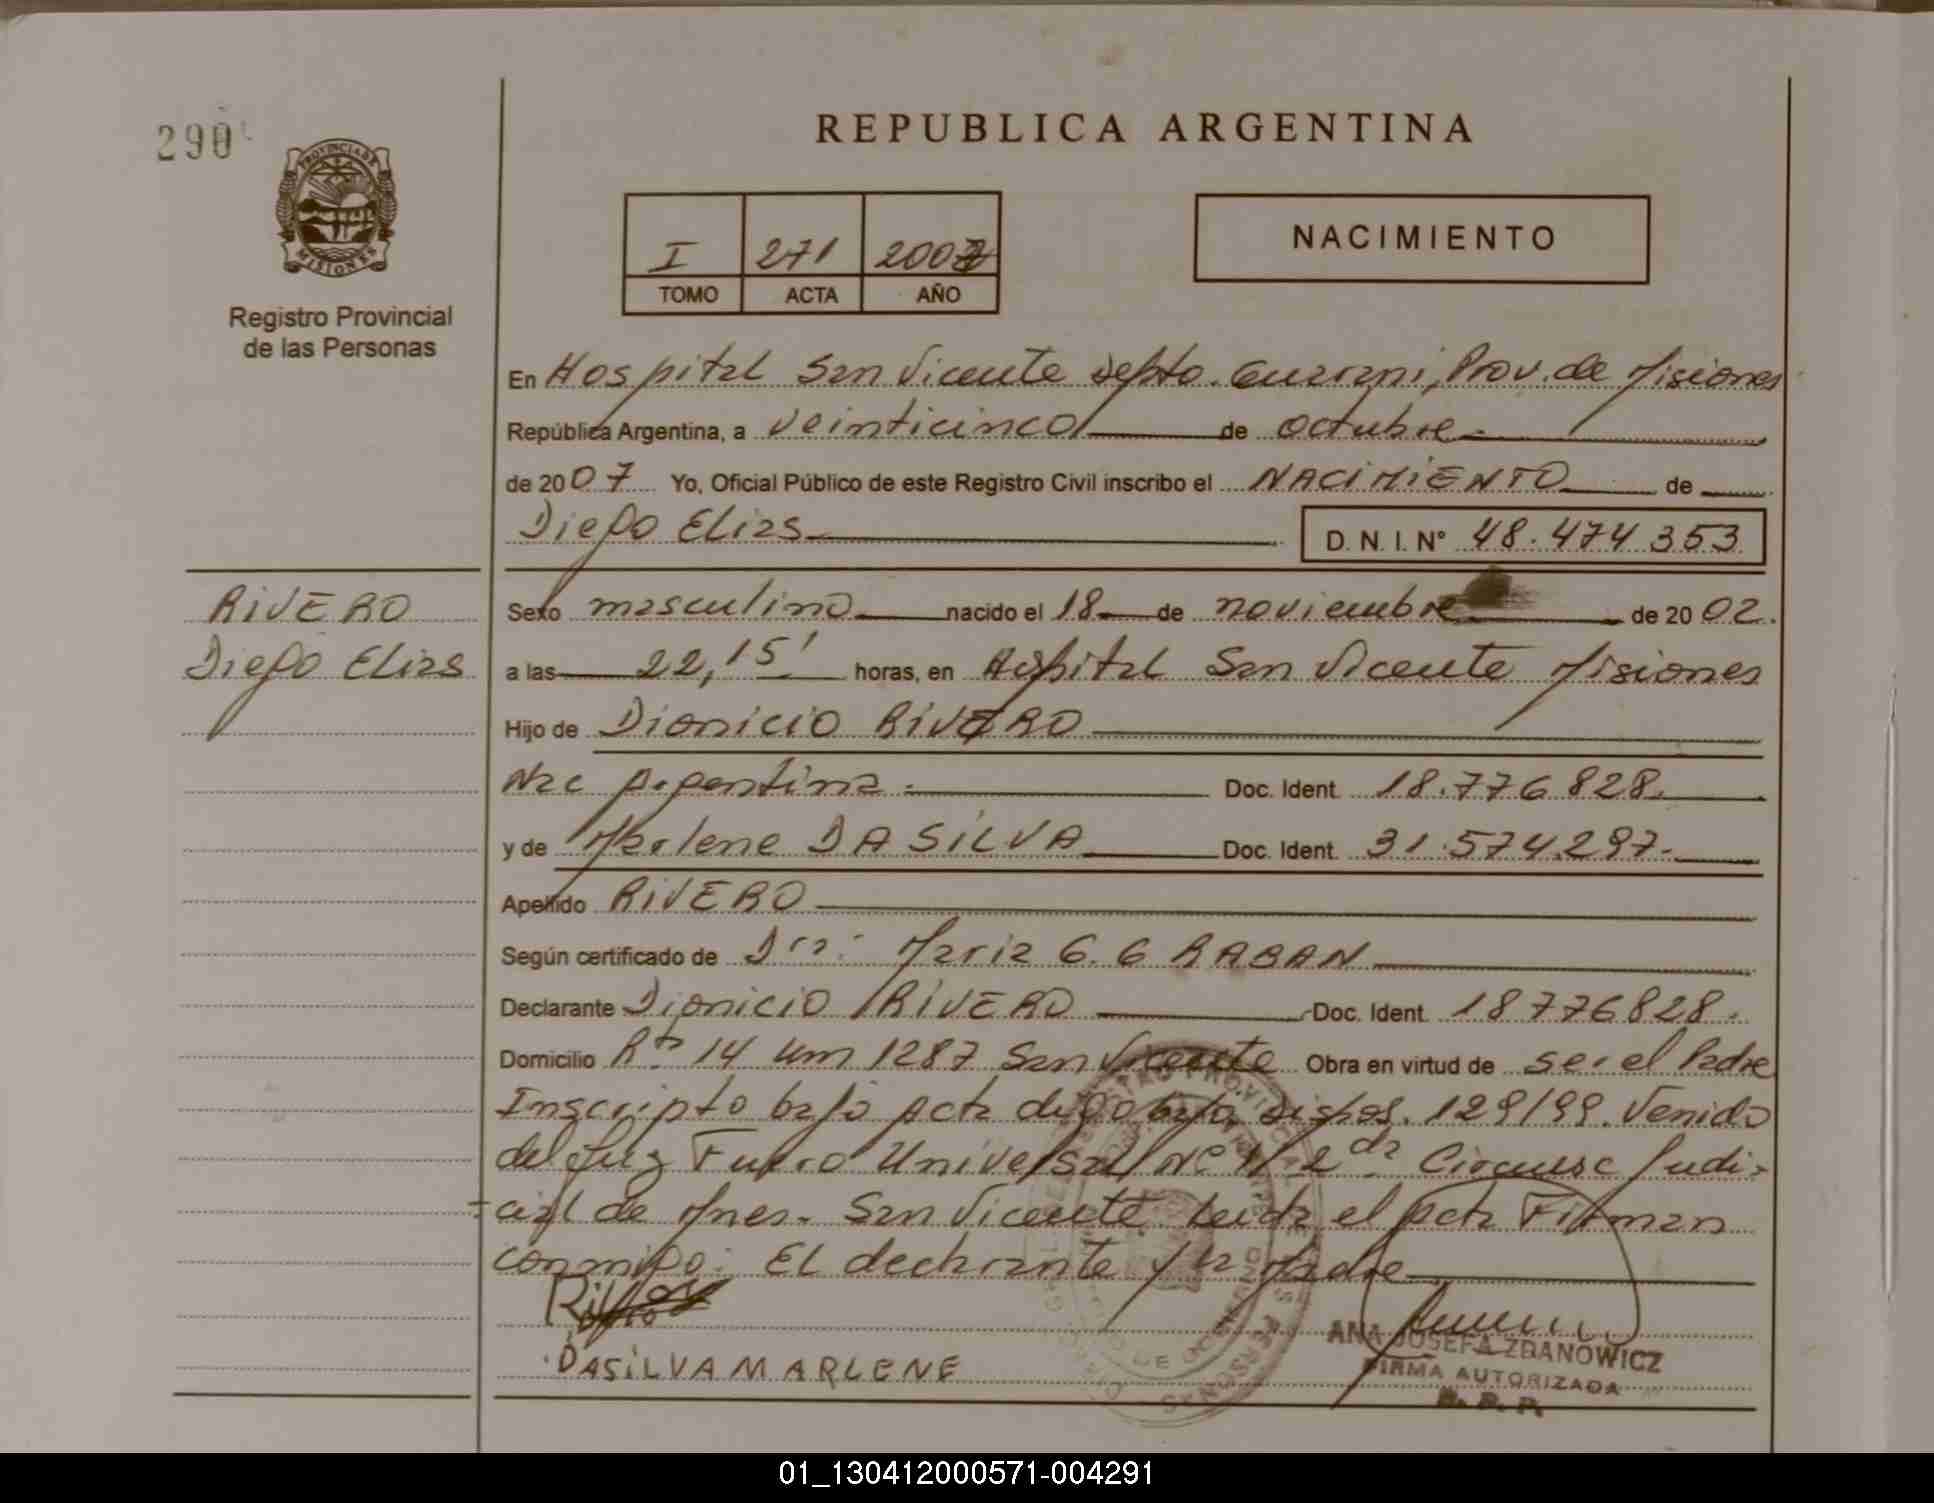 290
PROVINCIA DE
MISIONES
Registro Provincial
de las Personas
REPUBLICA ARGENTINA
I 271 2007
TOMO ACTA AÑO
NACIMIENTO
En Hospital San Vicente Depto. Guarani, Prov. de Misiones
República Argentina, a veinticinco de octubre
de 2007 Yo, Oficial Público de este Registro Civil inscribo el NACIMIENTO de
Diego Elias
D. N. I. N° 48.474.353
RIVERO
Diego Elias
Sexo masculino nacido el 18 de noviembre de 2002.
a las 22,15' horas, en Hospital San Vicente Misiones
Hijo de Dionicio RIVERO
Nac Argentina. Doc. Ident. 18.776.828.
y de Marlene DA SILVA Doc. Ident. 31.574.297.
Apellido RIVERO
Según certificado de Dra: Maria G. G RABAN
Declarante Dionicio RIVERO Doc. Ident. 18776828.
Domicilio Rta 14 Km 1287 San Vicente Obra en virtud de ser el Padre
Inscripto bajo acta digo bajo dispos. 129/99. Venido
del Juz Fuero Universal Nº 1 2da Circunsc Judi-
-cial de Mnes. San Vicente. Leida el acta Firman
conmigo: El declarante y la Madre
DASILVA MARLENE
ANA JOSEFA ZBANOWICZ
FIRMA AUTORIZADA
R. P. P.
01_130412000571-004291